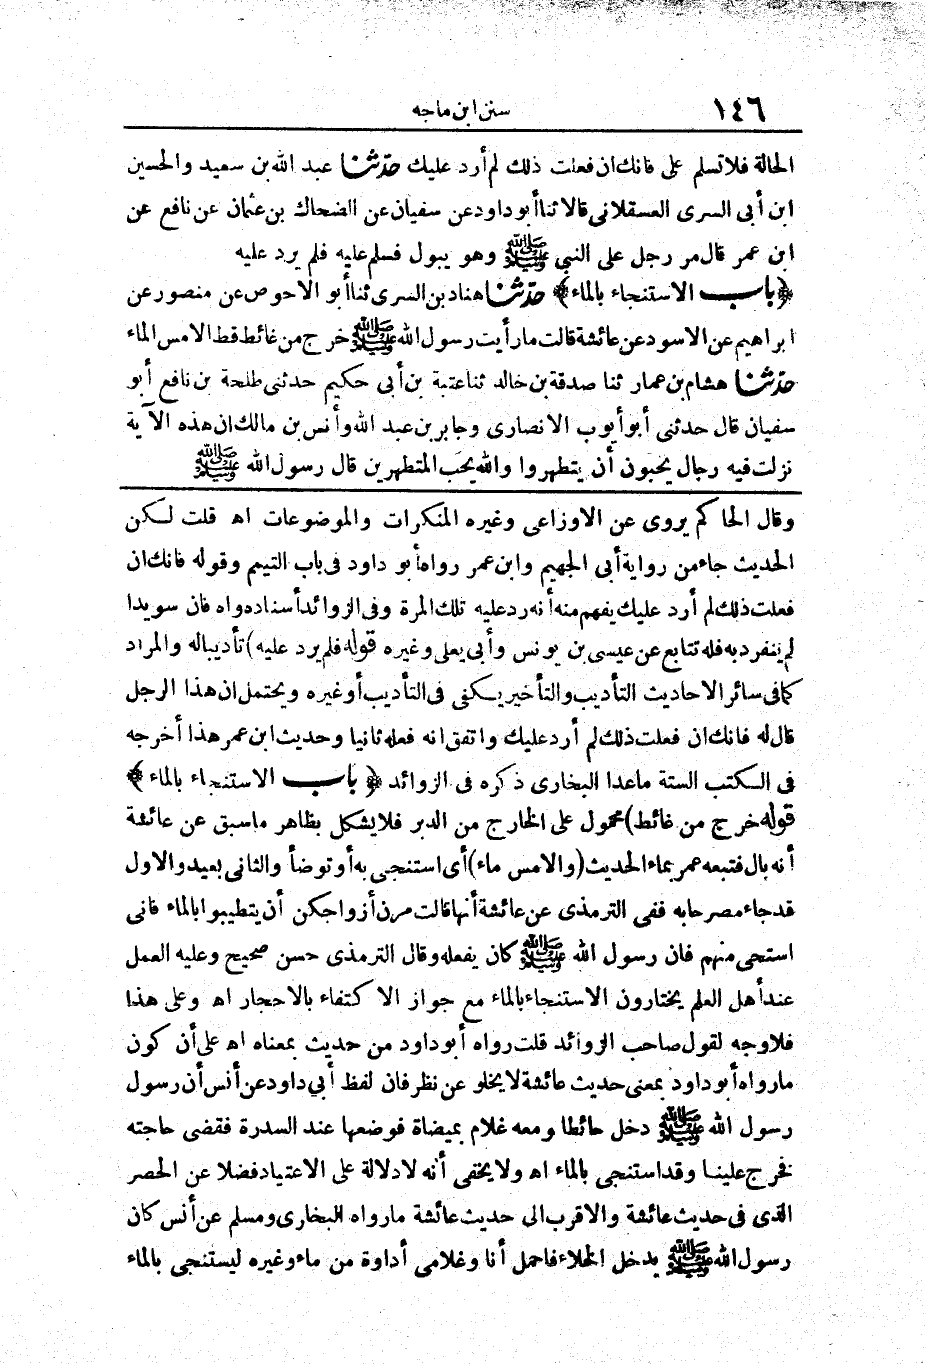 ١٤٦ سنن ابن ماجه
الحالة فلا تسلم على فانك ان فعلت ذلك لم أرد عليك حدّثنا عبد الله بن سعيد والحسين
ابن أبى السرى العسقلانى قالا ثنا أبو داود عن سفيان عن الضحاك بن عثمان عن نافع عن
ابن عمر قال مر رجل على النبي ﷺ وهو يبول فسلم عليه فلم يرد عليه
﴿ باب الاستنجاء بالماء ﴾ حدّثنا هناد بن السرى ثنا أبو الاحوص عن منصور عن
ابراهيم عن الاسود عن عائشة قالت ما رأيت رسول الله ﷺ خرج من غائط قط الا مس الماء
حدّثنا هشام بن عمار ثنا صدقة بن خالد ثنا عتبة بن أبى حكيم حدثنى طلحة بن نافع أبو
سفيان قال حدثنى أبو أيوب الانصارى وجابر بن عبد الله وأنس بن مالك ان هذه الآية
نزلت فيه رجال يحبون أن يتطهروا والله يحب المتطهرين قال رسول الله ﷺ
وقال الحاكم يروى عن الاوزاعى وغيره المنكرات والموضوعات اه قلت لكن
الحديث جاء من رواية أبى الجهيم وابن عمر رواه أبو داود فى باب التيمم وقوله فانك ان
فعلت ذلك لم أرد عليك يفهم منه أنه رد عليه تلك المرة وفى الزوائد أسناده واه فان سويدا
لم ينفرد به فله تتابع عن عيسى بن يونس وأبى يعلى وغيره قوله فلم يرد عليه) تأديبا له والمراد
كما فى سائر الاحاديث التأديب والتأخير يكفى فى التأديب أو غيره ويحتمل ان هذا الرجل
قال له فانك ان فعلت ذلك لم أرد عليك واتفق انه فعله ثانيا وحديث ابن عمر هذا أخرجه
فى الكتب الستة ماعدا البخارى ذكره فى الزوائد ﴿ باب الاستنجاء بالماء ﴾
قوله خرج من غائط) محمول على الخارج من الدبر فلا يشكل بظاهر ماسبق عن عائشة
أنه بال فتبعه عمر بماء الحديث (والا مس ماء) أى استنجى به أو توضأ والثانى بعيد والاول
قد جاء مصرحابه ففى الترمذى عن عائشة أنها قالت مرن أزواجكن أن يتطيبوا بالماء فانى
استحى منهم فان رسول الله ﷺ كان يفعله وقال الترمذى حسن صحيح وعليه العمل
عند أهل العلم يختارون الاستنجاء بالماء مع جواز الاكتفاء بالاحجار اه وعلى هذا
فلا وجه لقول صاحب الزوائد قلت رواه أبو داود من حديث بمعناه اه على أن كون
ما رواه أبو داود بمعنى حديث عائشة لا يخلو عن نظر فان لفظ أبي داود عن أنس أن رسول
رسول الله ﷺ دخل حائطا ومعه غلام بميضاة فوضعها عند السدرة فقضى حاجته
فخرج علينا وقد استنجى بالماء اه ولا يخفى أنه لا دلالة على الاعتياد فضلا عن الحصر
الذى فى حديث عائشة والاقرب الى حديث عائشة ما رواه البخارى ومسلم عن أنس كان
رسول الله ﷺ يدخل الخلاء فاحمل أنا وغلامى أداوة من ماء وغيره ليستنجى بالماء